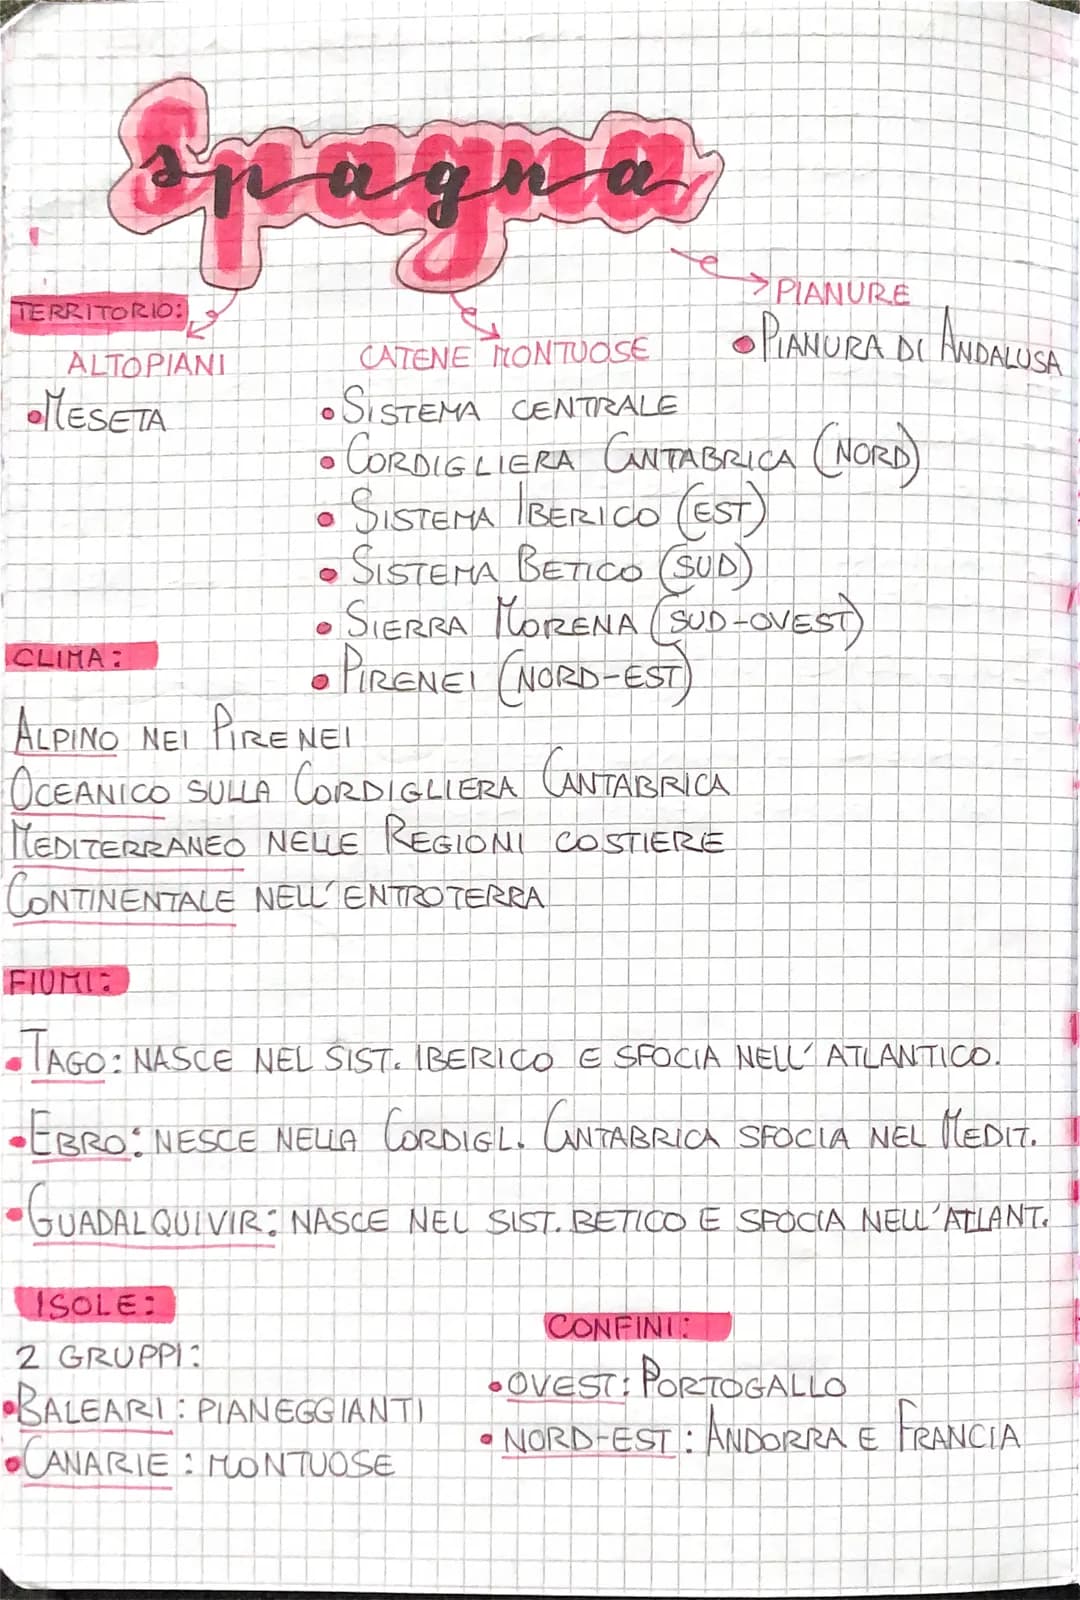 Spagna
TERRITORIO:
ALTOPIANI
•MESETA
CATENE MONTUOSE
• SISTEMA CENTRALE
• CORDIGLIERA CANTABRICA (NORD)
• SISTEMA IBERICO (EST)
• SISTEMA BETICO (SUD)
• SIERRA MORENA (SUD-OVEST)
• PIRENEI (NORD-EST)
PIANURE
• PIANURA DI ANDALUSA
CLIMA:
ALPINO NEI PIRENEI
OCEANICO SULLA CORDIGLIERA CANTABRICA
MEDITERRANEO NELLE REGIONI COSTIERE
CONTINENTALE NELL'ENTROTERRA
FIUMI:
•TAGO: NASCE NEL SIST. IBERICO E SFOCIA NELL'ATLANTICO.
•EBRO: NESCE NELLA CORDIGL. CANTABRICA SFOCIA NEL MEDIT.
•GUADALQUIVIR: NASCE NEL SIST. BETICO E SFOCIA NELL'ATLANT.
ISOLE:
2 GRUPPI:
•BALEARI: PIANEGGIANTI
•CANARIE: MONTUOSE
CONFINI:
•OVEST: PORTOGALLO
• NORD-EST: ANDORRA E FRANCIA